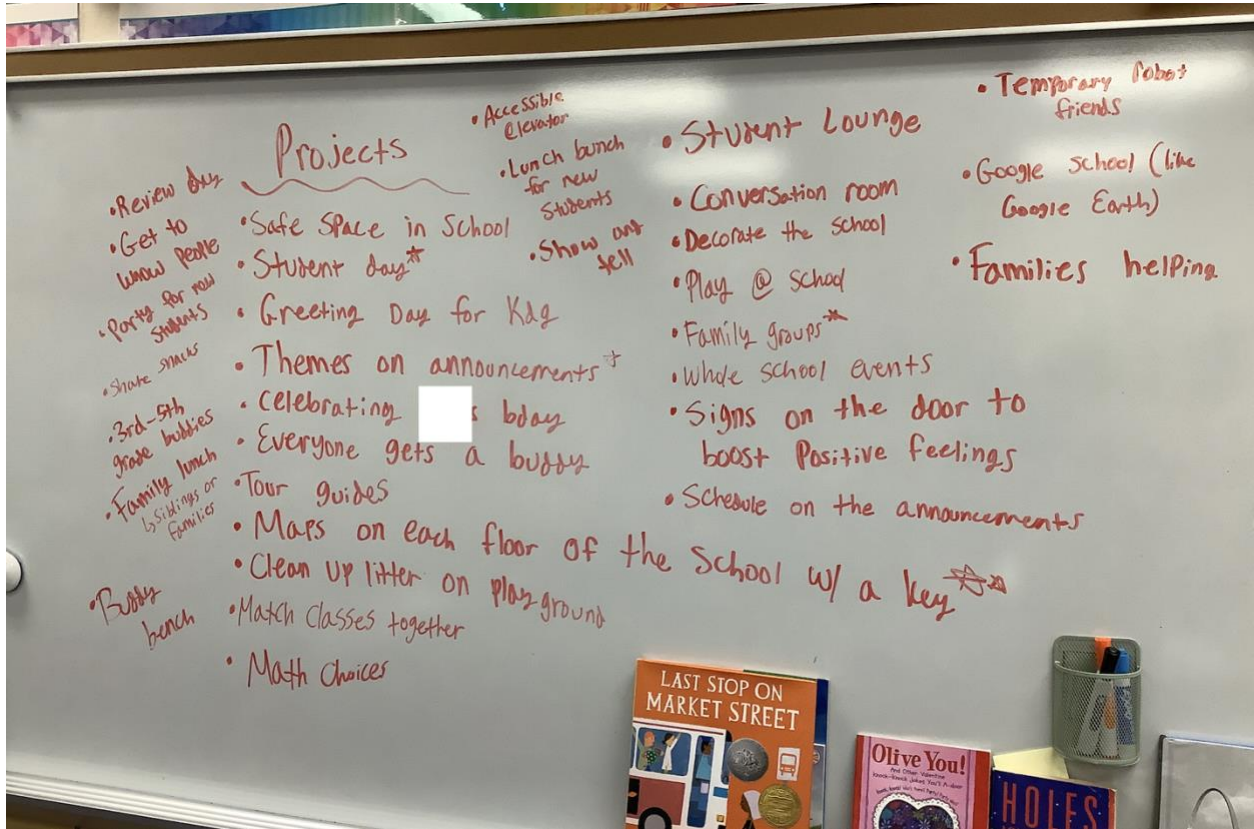 Projects
• Review day
• Get to
know people
• Party for new
students
• Share snacks
• 3rd-5th
grade buddies
• Family lunch
↳ Siblings or
families
• Buddy
bench
• Safe Space in School
• Student day*
• Greeting Day for Kdg
• Themes on announcements*
• Celebrating s bday
• Everyone gets a buddy
• Tour guides
• Maps on each floor of the School w/ a key☆☆
• Clean up litter on playground
• Match Classes together
• Math Choices
• Accessible
elevator
• Lunch bunch
for new
students
• Show and
tell
• Student Lounge
• Conversation room
• Decorate the school
• Play @ School
• Family groups*
• Whole school events
• Signs on the door to
boost Positive feelings
• Schedule on the announcements
• Temporary robot
friends
• Google school (like
Google Earth)
• Families helping
LAST STOP ON
MARKET STREET
Olive You!
And Other Valentine
Knock-Knock Jokes You'll A-door
HOLES